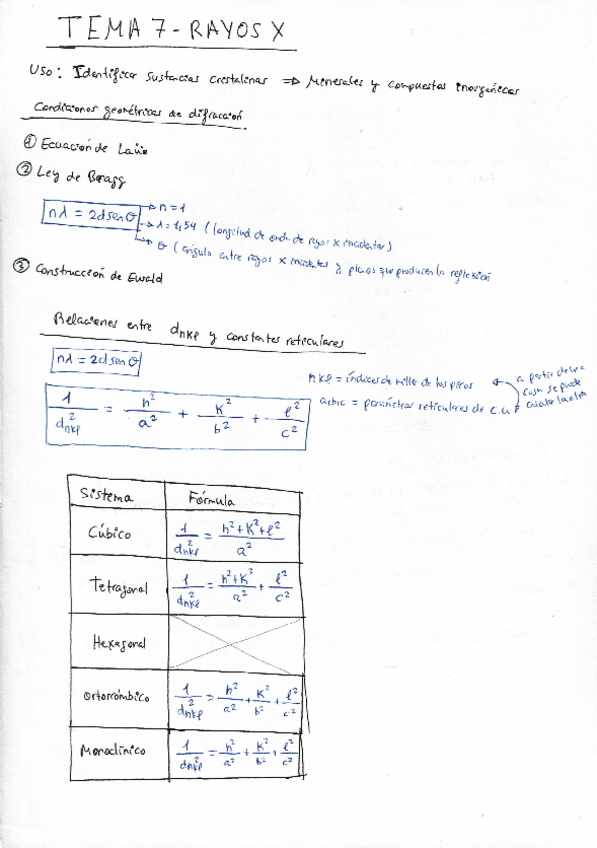 TEMA 7 - RAYOS X
Uso: Identificar sustancias cristalinas => Minerales y compuestos inorgánicos
Condiciones geométricas de difracción
① Ecuación de Laüe
② Ley de Bragg
nλ = 2d senθ
→ n = 1
→ λ = 1,54 (longitud de onda de rayos X incidentes)
→ θ (ángulo entre rayos X incidentes y planos que producen la reflexión
③ Construcción de Ewald
Relaciones entre d_hkl y constantes reticulares
nλ = 2d senθ
hkl = índices de Miller de los
a partir de
se puede
1/d²_hkl = h²/a² + k²/b² + l²/c²
a,b,c = parámetros reticulares de c.u
Sistema Fórmula
Cúbico 1/d²_hkl = h²+k²+l²/a²
Tetragonal 1/d²_hkl = h²+k²/a² + l²/c²
Hexagonal
Ortorrómbico 1/d²_hkl = h²/a² + k²/b² + l²/c²
Monoclínico 1/d²_hkl = h²/a² + k²/b² + l²/c²